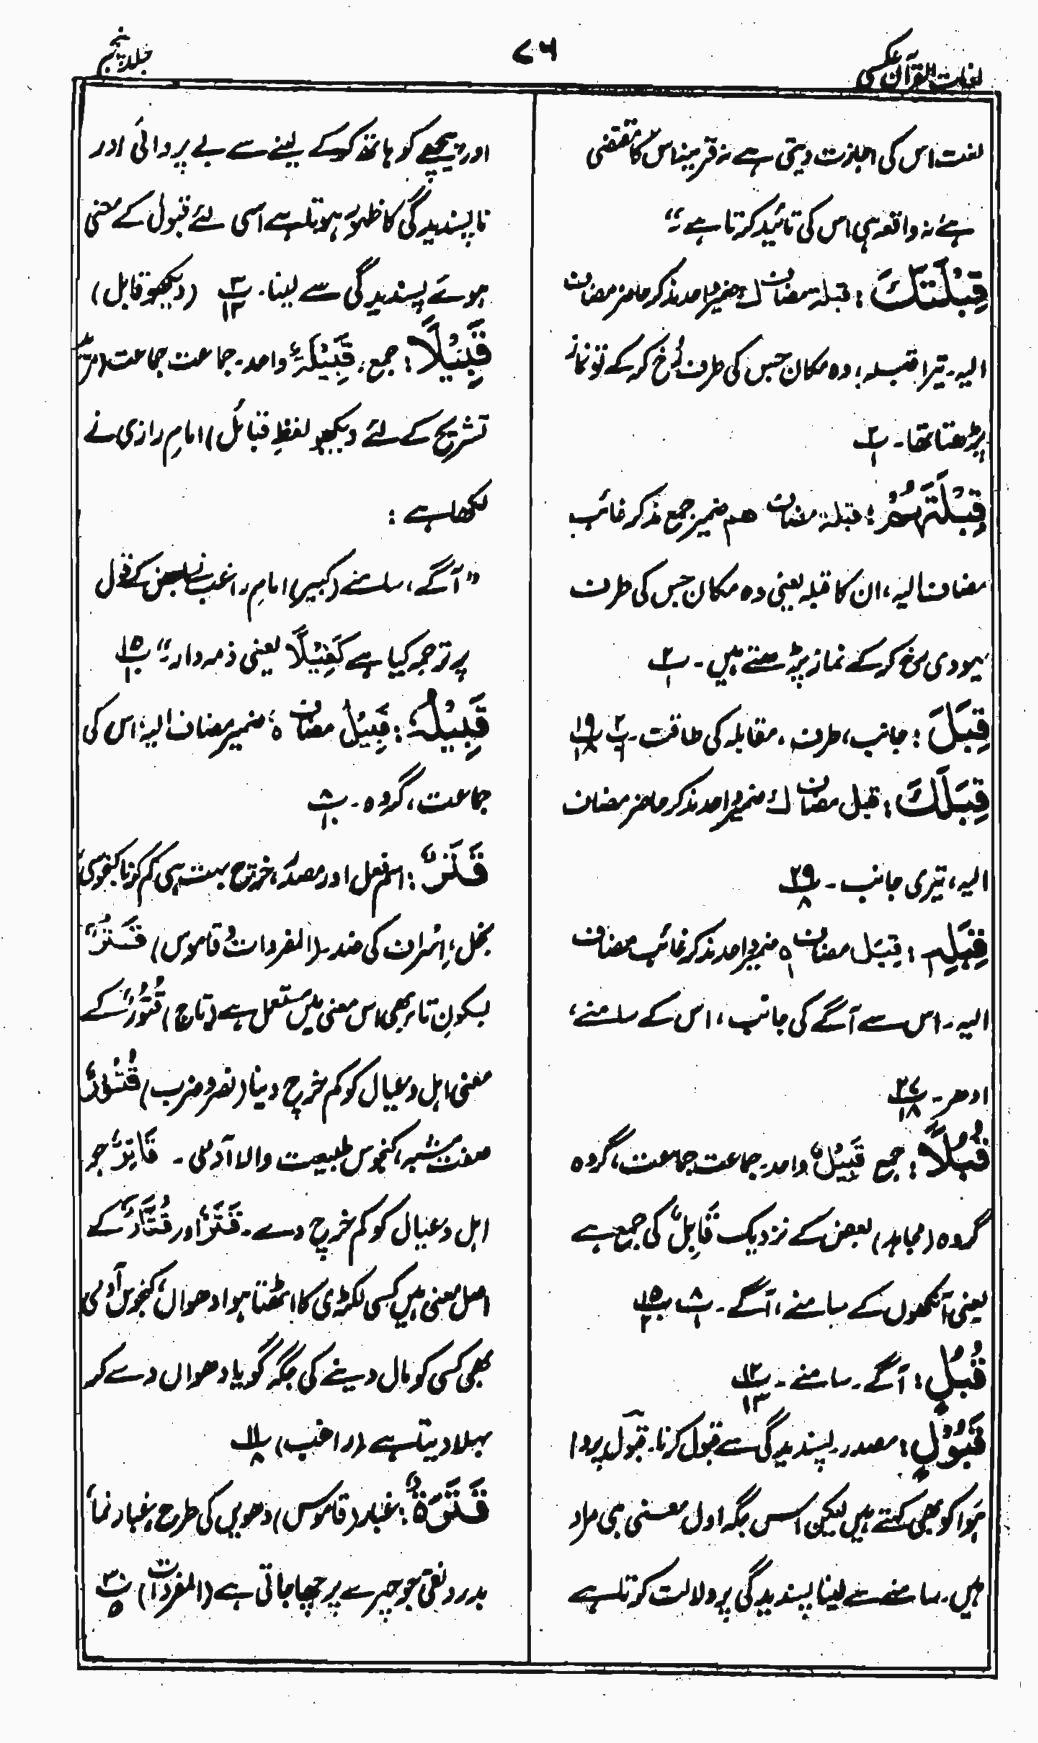 لغات القرآن عکسی
۷۶
جلد پنجم
لغت اس کی اجازت دیتی ہے نہ قرینہ اس کا مقتضی
ہے نہ واقعہ ہی اس کی تائید کرتا ہے۔"
قِبْلَتَكَ: قبلة مضاف ك ضمیر واحد مذکر حاضر مضاف
الیہ۔ تیرا قبلہ، وہ مکان جس کی طرف رُخ کر کے تو نماز
پڑھتا تھا۔ پ۲/۱
قِبْلَتَهُمْ: قبلة مضاف ھم ضمیر جمع مذکر غائب
مضاف الیہ، ان کا قبلہ یعنی وہ مکان جس کی طرف
یہودی رخ کر کے نماز پڑھتے ہیں۔ پ۲/۱
قِبَلَ: جانب، طرف، مقابلہ کی طاقت۔ پ۲/۶ پ۱۹/۱۸
قِبَلَكَ: قبل مضاف ك ضمیر واحد مذکر حاضر مضاف
الیہ، تیری جانب۔ پ۲۹/۸
قِبَلِهٖ: قِبَل مضاف ہ ضمیر واحد مذکر غائب مضاف
الیہ۔ اس سے آگے کی جانب، اس کے سامنے،
ادھر۔ پ۲۷/۱۸
قُبُلًا: جمع قَبِيْلٌ واحد۔ جماعت جماعت، گروہ
گروہ (مجاہد) بعض کے نزدیک قَابِلٌ کی جمع ہے
یعنی آنکھوں کے سامنے، آگے۔ پ۸/۱ پ۱۵/۲
قُبُلٍ: آگے۔ سامنے۔ پ۱۲/۱۳
قَبُوْلٍ: مصدر۔ پسندیدگی سے قبول کرنا۔ قبول پروا
ہوا کو بھی کہتے ہیں لیکن اس جگہ اول معنی ہی مراد
ہیں۔ سامنے سے لینا پسندیدگی پر دلالت کرتا ہے
اور پیچھے کو ہاتھ کر کے لینے سے بے پروائی اور
ناپسندیدگی کا ظہور ہوتا ہے اسی لئے قبول کے معنی
ہوئے پسندیدگی سے لینا۔ پ۳/۱۲ (دیکھو قابل)
قَبِيْلًا: جمع، قَبِيْلَةٌ واحد۔ جماعت جماعت
تشریح کے لئے دیکھو لفظِ قبائل) امام رازی نے
لکھا ہے:
"آگے، سامنے (کبیر) امام راغب نے بعض کے قول
پر ترجمہ کیا ہے كَفِيْلًا یعنی ذمہ دار۔" پ۱۵/۱۰
قَبِيْلُهٗ: قَبِيْلُ مضاف ہٗ ضمیر مضاف الیہ، اس کی
جماعت، گروہ۔ پ۸/۱۰
قَتَرٌ: اسم فعل اور مصدر، خرچ بہت ہی کم کرنا کنجوسی
بخل، اِسْراف کی ضد (المفردات و قاموس) قَتْرٌ
بسکونِ تا بھی اس معنی میں مستعمل ہے (تاج) قُتُوْرٌ کے
معنی اہل و عیال کو کم خرچ دینا (نصر و ضرب) قَتُوْرٌ
صفت مشبہ، کنجوس طبیعت والا آدمی۔ قَاتِرٌ جو
اہل و عیال کو کم خرچ دے۔ قَتَرٌ اور قُتَارٌ کے
اصل معنی ہیں کسی لکڑی کا اٹھتا ہوا دھواں، کنجوس آدمی
بھی کسی کو مال دینے کی جگہ گویا دھواں دے کر
بہلا دیتا ہے (راغب) پ۱۱/۸
قَتَرَةٌ: غبار (قاموس) دھویں کی طرح غبار نما
بدرونقی جو چہرے پر چھا جاتی ہے (المفردات) پ۳۰/۵